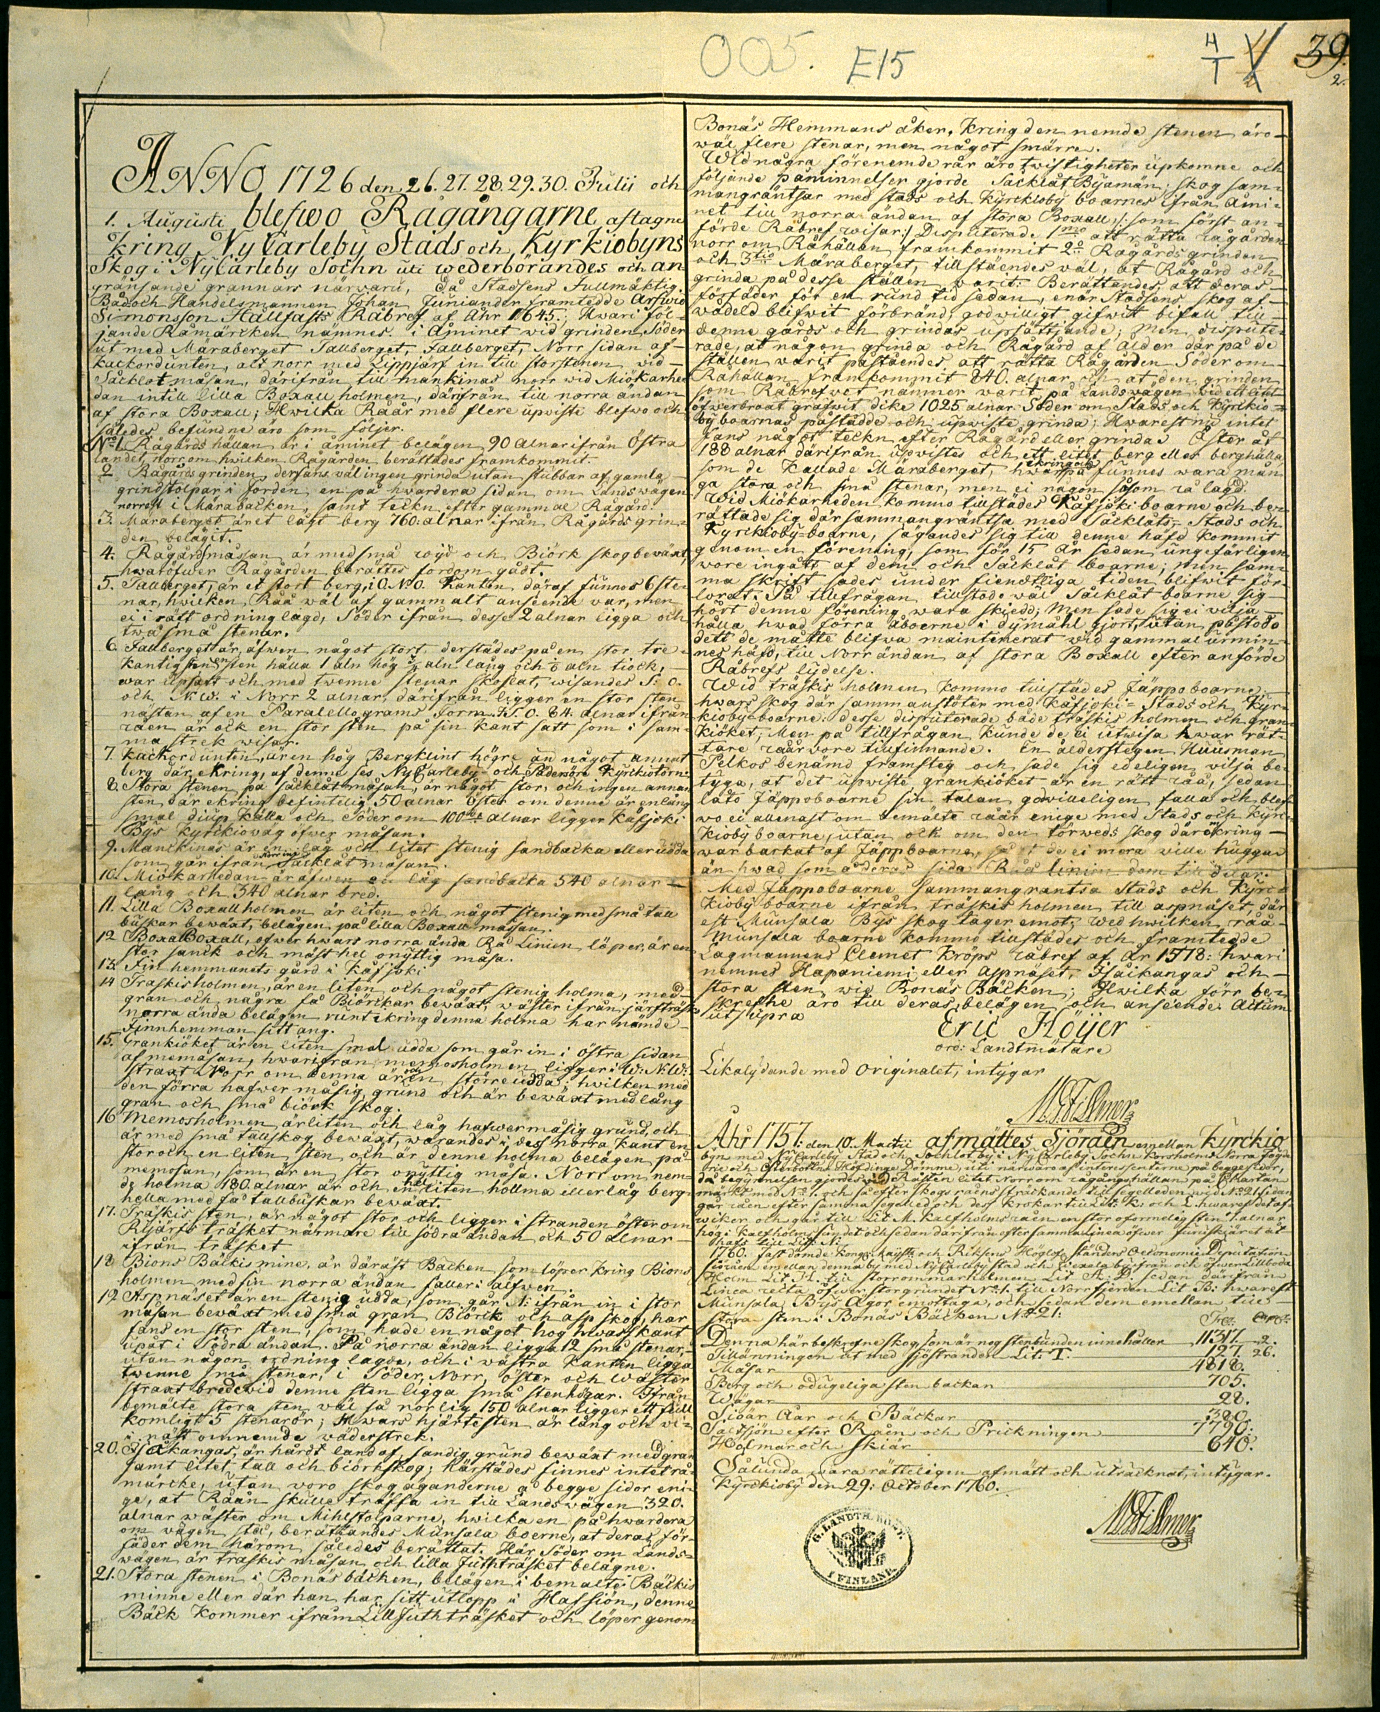 005.
E15
4
1
39.
2.
ANNO 1726 den 26. 27. 28. 29. 30. Julii och
1. Augusti blefwo Rågångarne aftagne
kring NyCarleby Stads och Kyrkiobyns
Skog i NyCarleby Sochn uti wederbörandes och an
gränsande grannars närvaru, Då Stadsens Fullmäktig.
Båd och Handelsmannen Johan Juniander framtedde Arfwid
Simonsson Hällfasts Råbref af Åhr 1645; Hwari föl-
jande Råmärcken nämnes. i Åminet wid grinden, Söder
ut med Märaberget Tallberget, Fallberget, Norr sidan af
kackordunten, alt norr med Lippjärf in till storstenen wid
Säcklot måsan, därifrån till mankinas norr wid Miökarhe
dan intill lilla Boxall holmen, därifrån till norra ändan
af stora Boxall; Hwilka Råar med flere upwiste blefwo och
således befundne äro som följer.
No 1. Rågårds hällan är i åminet belägen 90 alnar ifrån Östra
landet, norr om hwilken Rågården berättades framkommit.
2. Rågårds grinden, dersans wäl ingen grinda utan stubbar af gamla
grindstolpar i jorden, en på hwardera sidan om Landswägen
norrest i Marabacken, samt teckn efter gammal Rågård.
3. Maraberget äret lågt berg 760. alnar ifrån Rågårds grin-
den belägit.
4. Rågårdsmåsan är med små wijd och Biörk skog bewäxt,
hwaröfwer Rågården berättes fordom gådt.
5. Tallberget, är et stort berg, i O. N.O. Kanten däraf funnos 6 ste
nar, hwilken Råå wäl af gammalt anseende var, men
ei i rätt ordning lagd, Söder ifrån desse 2 alnar ligga och
twå små stenar.
6. Fallberget är äfwen något stort, derstädes på en stor tre-
kantig jordsten hälla 1 aln hög aln lång och aln tiock,
war upsatt och med twenne stenar skolat, wisandes S: O.
och N: W. i Norr 2 alnar därifrån ligger en stor sten
nästen af en Paralellograms form N. O. 84 alnar ifrån
råen är ock en stor sten på sin kant satt som i sam-
ma streck wisar.
7. Kackordunten, är en hög Bergklint högre än något annat
berg där ekring, af denne ses NyCarleby och Pedersöre Kyrckiotorn.
8. Stora stenen på säcklåt måsan, är något stor, och ingen annan
sten där ekring befintelig 50 alnar Öster om denne är en lång
smal diup källa och Söder om 100de alnar ligger Käfjoki
Bys kyrckiowäg öfwer måsan.
9. Manckinas är en låg och litet stenig sandbacka eller udda
som går ifrån Norr in på säcklåt måsan.
10. Miökarhedan är äfwen en låg sandbacka 540 alnar
lång och 340 alnar bred.
11. Lilla Boxall holmen är liten och något stenig med små tall
buskar bewäxt, belägen på lilla Boxall måsan.
12 Boxall, öfwer hwars norra ända Rå Linien löper, är en
stor sanck och mäst hel onyttig måsa.
13. Finhemmanets gård i Käfjoki.
14 Träskisholmen, är en liten och något stenig holma, med
gran och några få Biörckar bewäxt, wäster ifrån järfträsk
norra ända belägen runt ekring denna holma har nämde
Finnhemman sitt äng.
15. Grankiöket är en liten smal udda som går in i östra sidan
af memåsan, hwarifrån memosholmen ligger i W: N.W:
straxt Norr om denna är en större udda, hwilken med
den förra hafwer måsig grund och är bewäxt med lång
gran och små biörk skog.
16 Memosholmen är liten och låg hafwer måsig grund, och
är med små tallskog bewäxt, warandes i des norra kant en
stor och en liten sten och är denne holma belägen på
memosan, som är en stor onyttig måsa. Norr om nem-
de holma 180. alnar är och en liten hollma eller låg berg-
hella med få tallbuskar bewäxt.
17. Träskis sten, är något stor och ligger i stranden öster om
Rijärfs träsket närmare till södra ändan och 50 alnar
ifrån träsket
18 Bions Bäckis mine, är däräst Bäcken som löper kring Bions
holmen med sin norra ändan faller i älfwen.
19 Aspnäset är en stenig udda, som går N: ifrån in i stor
måsan bewäxt med små gran Biörk och asp skog, har
fans en stor sten, som hade en något hög hwass kant
upåt i Södra ändan. På norra ändan ligga 12 små stenar,
utan någon ordning lagde, och i wästra kanten ligga
twenne små stenar, i Söder, Norr, öster och wäster
straxt bredewid denne sten ligga små stenhögar. Ifrån
bemälte stora sten, wäl så nörlig 150 alnar ligger ett full
komligt 5 stenarör; Hwars hjärtesten är lång och wi-
i rätt omnemde wäderstrek.
20. Isåkangas, är hårdt land af sandig grund bewäxt med gran
samt litet tall och biörkskog; Härstädes finnes intet rå-
märcke, utan woro skog ägarderne å begge sidor eni-
ge, at Råån skulle träffa in till Landswägen 320.
alnar wäster om Mihlstolparne, hwilka en på hwardera
om wägen stå, berättandes Munsala boerne, at deras för
fäder dem härom således berättat. Här Söder om Lands-
wägen är träskis måsan och lilla Juthträsket belägne.
21. Stora stenen i Bonäs bäcken, belägen i bemälte Bäckis
minne eller där han har sitt utlopp i Hafsiön, denne
Bäck kommer ifrån Lill Juthträsket och löper genom
Bonäs Hemmans åker, kring den nemde stenen äro
wäl flere stenar, men något smärre.
Wid några förenemde rår äro twistigheter upkomne och
följande påminnelser gjorde Säcklåt Byamän, skog sam-
mangräntsar med stads och Kyrckioby boernes ifrån åmi-
net till norra ändan af stora Boxall /: som först an-
förde Råbref wisar :/ Disputerade 1mo att rätta rågården
norr om Råhällan framkommit 2o Rågårds grinden
och 3tio Maraberget, tillståendes wäl, at Rågård och
grinda på desse ställen warit: Berättandes att deras
förfäder för en rund tid sedan, enär Stadsens skog af-
wådeld blifwit förbränd, godwilligt gifwit bifall till
denne gårds och grindas upsättjande; Men dispute-
rade, at någon grinda och Rågård af ålder där på de
ställen warit påståendes, att rätta Rågården Söder om
Råhällan framkommit 840. alnar och at den grinden
som Råbrefwet nämner warit på Landswägen wid ett litet
öfwerbroat grafwit dike 1025 alnar Söder om Stads och Kyrkio
by boarnas påstådde och upwiste grinda; Hwarest nu intet
fans någor teckn efter Rågård eller grinda. Öster ut
188 alnar därifrån upwistes och ett litet berg eller berghälla
som de kallade Maraberget, hwarpå ekring funnes wara mån-
ga stora och små stenar, men ei någon såsom rå lagd.
Wid Miökarheden kommo tillstädes Käfjoki boarne och be-
rättade sig där sammangräntsa med Säcklåts- Stads och
Kyrckioby boarne, sägandes sig till denne häfd kommit
genom en förening, som för 15 år sedan ungefärligen
wore ingått af dem och Säcklåt boarne; Men sam-
ma skrift sades under fiendtliga tiden blifwit för
lorat: På tillfrågan tillstodo wäl Säcklåt boarne sig
hört denne förening wara skiedd, Men sade sig ei wilja
hålla hwad förra åboerne i dymåhl giort, utan påstodo
dett de måtte blifwa maintenerat wid gammal urmin-
nes häfd, till Norr ändan af stora Boxall efter anförde
Råbrefs lydelse.
Wid träskis holmen kommo tillstädes Jäppo boarne,
hwars skog där sammanstöter med Käfjoki- Stads och Kyr-
kioby boarne. desse disputerade både träskis holmen och gran
kiöket; Men på tillfrågan kunde de ei utwisa hwar rät-
tare råår wore tillfinnande. En ålderstegen Huusman
Pelkos benämd framsteg och sade sig edeligen wilja be-
tyga, at det upwiste grankiöket är en rätt råå, sedan
låto Jäppo boarne sin talan godwilleligen falla och blef
wo ei allenast om bemälte råår enige med Stads och Kyrc-
kioby boarne, utan ock om den törweds skog där ekring
war barkat af Jäppboarne, så at de ei mera wille huggas
än hwad som å deras sida Råå linien dem till delar.
Med Jäppoboarne sammangräntsa Stads och Kyrc-
kioby boarne ifrån träskis holmen till aspnäset, där
est Munsala Bys skog tager emot; Wed hwilken råå
Munsala boarne kommo tillstädes och framtedde
Lagmannens Clemet Krops råbref af Åhr 1578: hwari
nemnes Hapaniemi eller Aspnäset, Isåckangas och
stora sten wid Bonäs Bäcken; Hwilka förr be-
skrefne äro till deras belägen och anseende. Actum
ut supra
Eric Höijer
ord: Landtmätare
Likalydande med Originalet, intygar
Åhr 1757: den 10. Martii afmättes Sjöråen emellan Kyrckio
byns med NyCarleby Stad och Sochlot by i NyCarleby Sochn Korsholms Norra Fögde
rie och Österbottns Höfdinge Dömme, uti närwaro af intressenterna på begge sidor,
då begynnelsen gjordes wid Råsten litet Norr om rågångshällan på Chartan
märkt med No 1. och så efter skogs råens sträckande till segelleden wid No 21 sidan
går råen efter samma segelled och des krokar till Lit: K: och L. hwarest det af-
wiker och går till Lit M. Kalfholms råen en stor oformelig sten 1 aln
hög i Kalfholms sundet och sedan därifrån efter samma linea öfwer Juriskiäret åt
hafs till Lit: N:
1760. fastdömde Kongl. Maijts och Riksens Höglofl. Ständers Oeconomie Deputation
sjöråen emellan denna by med NyCarleby stad och Wexala by ifrån och öfwer Lillboda
Holm Lit. H. till storrommarholmen Lit. A. B. sedan därifrån
Linea recta öfwer storgrundet No 1. till Norrfjerden Lit B: hwarest
Munsala Bys Ägor emottaga, och sedan dem emellan till
stora sten i Bonäs Bäcken No 21.
Denna här beskrefne skog som är nog stenbunden innehåller 11317. 2.
Tillänningen ut med sjöstranden Lit: T. 127. 26.
Måsar 4818.
Berg och odugeliga sten backar 705.
Wägar 28.
Siöar Åar och Bäckar 380.
Saltsjön efter Råen och Prickningen 7790.
Holmar och Skiär 640.
Sålunda wara rätteligen afmätt och uträcknat, intygar.
Kyrckioby den 29: October 1760.
G. LANDTM. KONT.
I FINLAND.